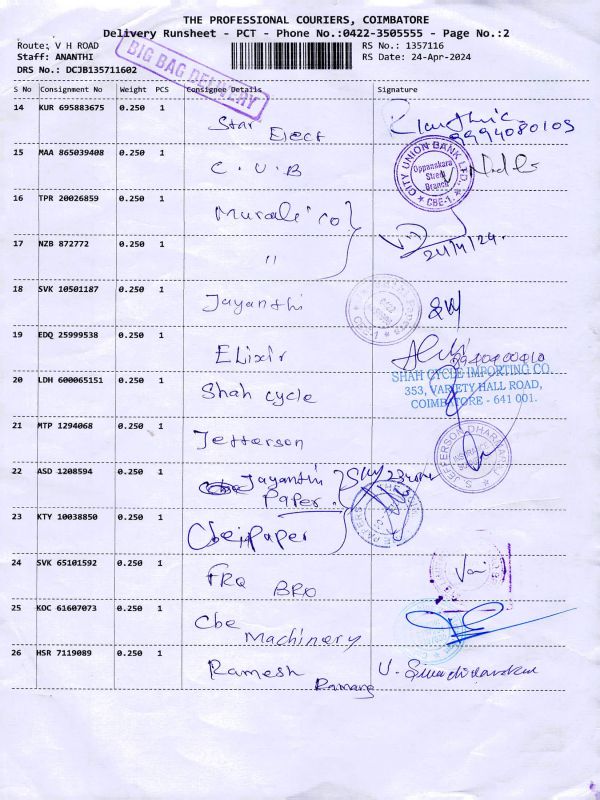 THE PROFESSIONAL COURIERS, COIMBATORE
Delivery Runsheet - PCT - Phone No.:0422-3505555 - Page No.:2
Route: V H ROAD
RS No.: 1357116
Staff: ANANTHI
RS Date: 24-Apr-2024
DRS No.: DCJB135711602
BIG BAG DELIVERY
S No Consignment No Weight PCS Consignee Details Signature
14 KUR 695883675 0.250 1 Star Eject
9994080105
15 MAA 865039408 0.250 1 C.U.B
CITY UNION BANK LTD.
Oppanakara
Street
Branch
* CBE-1. *
16 TPR 20026859 0.250 1 Murali co
17 NZB 872772 0.250 1 "
24/4/24.
18 SVK 10501187 0.250 1 Jayanthi
19 EDQ 25999538 0.250 1 Elixir
20 LDH 600065151 0.250 1 Shah cycle
SHAH CYCLE IMPORTING CO.
353, VARIETY HALL ROAD,
COIMBATORE - 641 001.
21 MTP 1294068 0.250 1 Jefferson
22 ASD 1208594 0.250 1 Jayanthi
Paper
23 KTY 10038850 0.250 1 Cbe Paper
24 SVK 65101592 0.250 1 FRQ BRO
25 KOC 61607073 0.250 1 Cbe Machinery
26 HSR 7119089 0.250 1 Ramesh